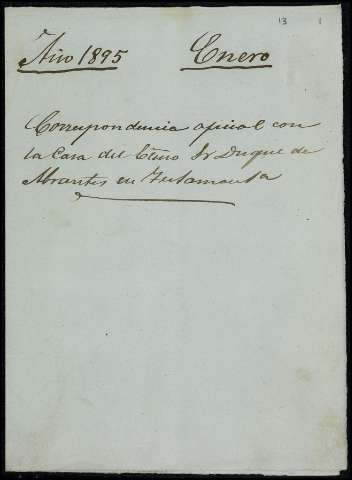 13 1
Año 1895 Enero
Correspondencia oficial con
la Casa del Excmo Sr Duque de
Abrantes en